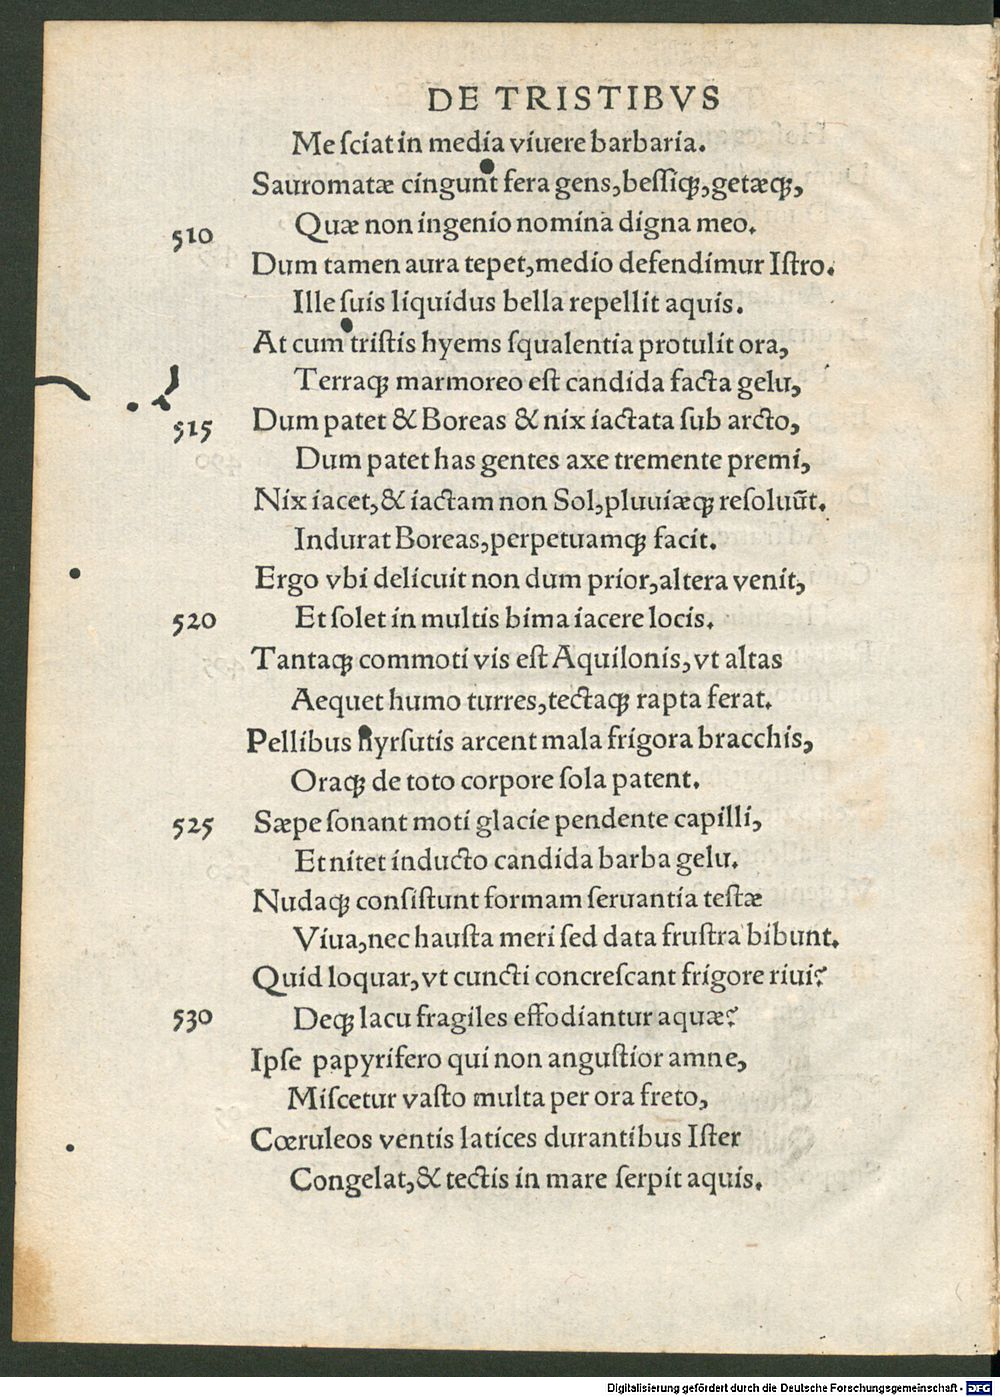 DE TRISTIBVS
Me ſciat in media viuere barbaria.
Sauromatæ cingunt fera gens, beſſiq;, getæq;,
Quæ non ingenio nomina digna meo.
510
Dum tamen aura tepet, medio defendimur Iſtro.
Ille ſuis liquidus bella repellit aquis.
At cum triſtis hyems ſqualentia protulit ora,
Terraq; marmoreo eſt candida facta gelu,
515 Dum patet & Boreas & nix iactata ſub arcto,
Dum patet has gentes axe tremente premi,
Nix iacet, & iactam non Sol, pluuiæq; reſoluūt.
Indurat Boreas, perpetuamq; facit.
Ergo vbi delicuit non dum prior, altera venit,
520 Et ſolet in multis bima iacere locis.
Tantaq; commoti vis eſt Aquilonis, vt altas
Aequet humo turres, tectaq; rapta ferat.
Pellibus hyrſutis arcent mala frigora bracchis,
Oraq; de toto corpore ſola patent.
525 Sæpe ſonant moti glacie pendente capilli,
Et nitet inducto candida barba gelu.
Nudaq; conſiſtunt formam ſeruantia teſtæ
Viua, nec hauſta meri ſed data fruſtra bibunt.
Quid loquar, vt cuncti concreſcant frigore riui?
530 Deq; lacu fragiles effodiantur aquæ?
Ipſe papyrifero qui non anguſtior amne,
Miſcetur vaſto multa per ora freto,
Cœruleos ventis latices durantibus Iſter
Congelat, & tectis in mare ſerpit aquis.
Digitalisierung gefördert durch die Deutsche Forschungsgemeinschaft - DFG